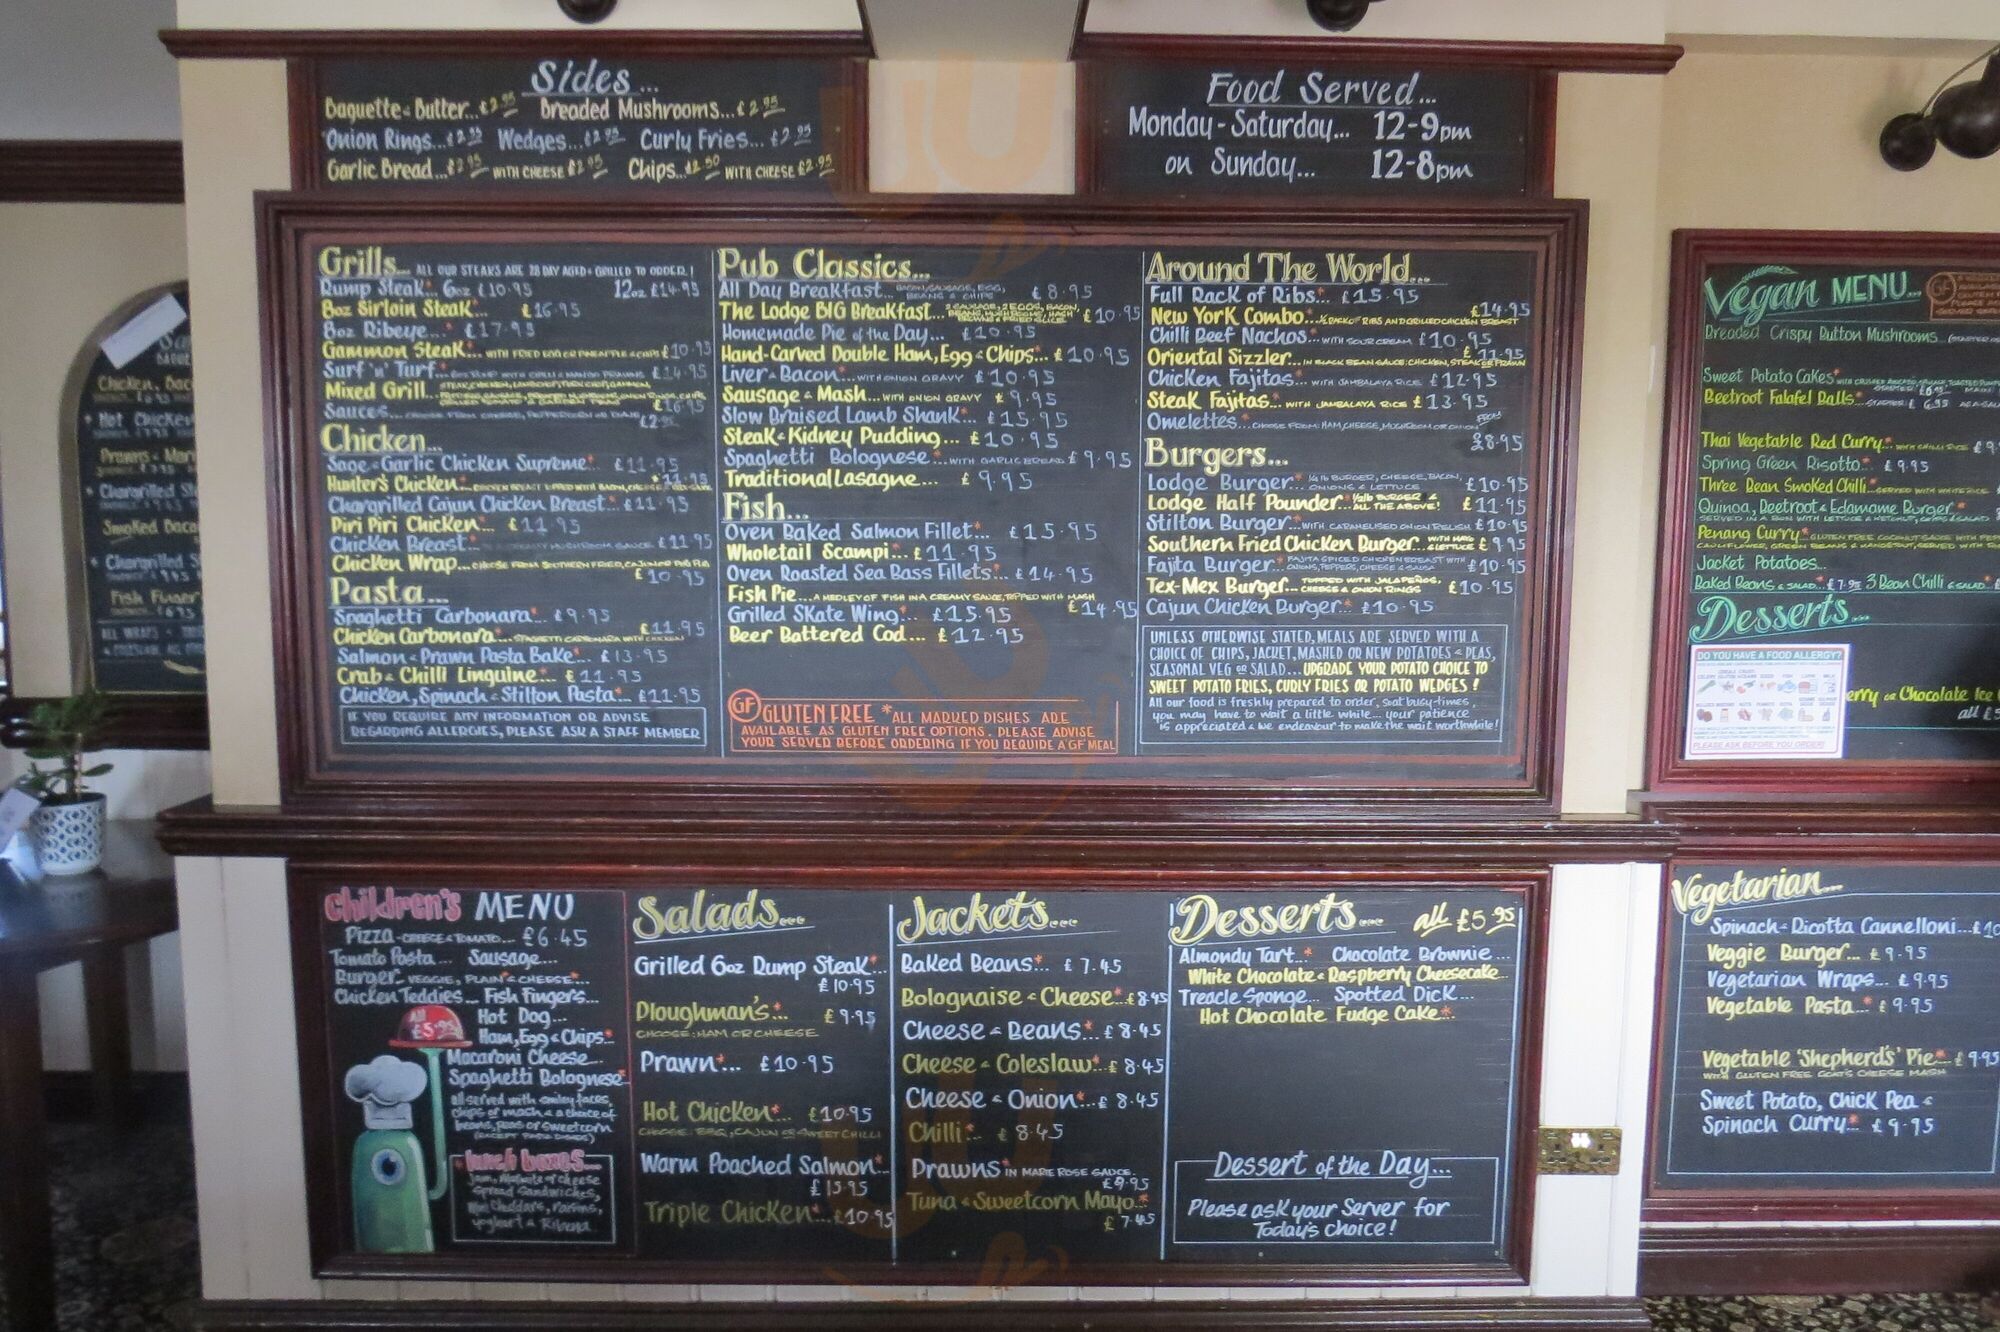 Sides...
Baguette & Butter...£2.95 Breaded Mushrooms...£2.95
Onion Rings...£2.95 Wedges...£2.95 Curly Fries...£2.95
Garlic Bread...£2.95 WITH CHEESE £2.95 Chips...£2.50 WITH CHEESE £2.95
Food Served...
Monday - Saturday... 12-9pm
on Sunday... 12-8pm
Grills... ALL OUR STEAKS ARE 28 DAY AGED & GRILLED TO ORDER!
Rump Steak* 6oz £10.95 12oz £14.95
8oz Sirloin Steak* £16.95
8oz Ribeye...* £17.95
Gammon Steak*... WITH FRIED EGG OR PINEAPPLE & CHIPS £10.95
Surf 'n' Turf...* £14.95
Mixed Grill...
£16.95
Sauces...
£2.95
Chicken...
Sage & Garlic Chicken Supreme* £11.95
Hunter's Chicken*... £11.95
Chargrilled Cajun Chicken Breast*... £11.95
Piri Piri Chicken*... £11.95
Chicken Breast*... MUSHROOM SAUCE £11.95
Chicken Wrap...CHOOSE FROM SOUTHERN FRIED, CAJUN OR PIRI PIRI
£10.95
Pasta...
Spaghetti Carbonara* £9.95
Chicken Carbonara*... SPAGHETTI CARBONARA WITH CHICKEN £11.95
Salmon & Prawn Pasta Bake*... £13.95
Crab & Chilli Linguine*... £11.95
Chicken, Spinach & Stilton Pasta*... £11.95
IF YOU REQUIRE ANY INFORMATION OR ADVISE
REGARDING ALLERGIES, PLEASE ASK A STAFF MEMBER
Pub Classics...
All Day Breakfast... BACON, SAUSAGE, EGG, BEANS & CHIPS £8.95
The Lodge BIG Breakfast... 2 SAUSAGE, 2 EGGS, BACON BEANS, MUSHROOMS, HASH BROWNS & FRIED SLICE £10.95
Homemade Pie of the Day... £10.95
Hand-Carved Double Ham, Egg & Chips*... £10.95
Liver & Bacon*... WITH ONION GRAVY £10.95
Sausage & Mash... WITH ONION GRAVY £9.95
Slow Braised Lamb Shank*... £15.95
Steak & Kidney Pudding... £10.95
Spaghetti Bolognese*... WITH GARLIC BREAD £9.95
Traditional Lasagne... £9.95
Fish...
Oven Baked Salmon Fillet* £15.95
Wholetail Scampi... £11.95
Oven Roasted Sea Bass Fillets*... £14.95
Fish Pie... A MEDLEY OF FISH IN A CREAMY SAUCE, TOPPED WITH MASH
£14.95
Grilled Skate Wing* £15.95
Beer Battered Cod... £12.95
GF GLUTEN FREE *ALL MARKED DISHES ARE
AVAILABLE AS GLUTEN FREE OPTIONS. PLEASE ADVISE
YOUR SERVER BEFORE ORDERING IF YOU REQUIRE A GF MEAL
Around The World...
Full Rack of Ribs*... £15.95
New York Combo*... ½ RACK OF RIBS AND GRILLED CHICKEN BREAST £14.95
Chilli Beef Nachos* WITH SOUR CREAM £10.95
Oriental Sizzler... IN BLACK BEAN SAUCE; CHICKEN, STEAK OR PRAWN £11.95
Chicken Fajitas* WITH JAMBALAYA RICE £12.95
Steak Fajitas*... WITH JAMBALAYA RICE £13.95
Omelettes*... CHOOSE FROM: HAM, CHEESE, MUSHROOM OR ONION FROM
£8.95
Burgers...
Lodge Burger* ¼ lb BURGER, CHEESE, BACON, ONIONS & LETTUCE £10.95
Lodge Half Pounder* ½ lb BURGER & ALL THE ABOVE! £11.95
Stilton Burger* WITH CARAMELISED ONION RELISH £10.95
Southern Fried Chicken Burger... WITH MAYO & LETTUCE £9.95
Fajita Burger* FAJITA SPICED CHICKEN BREAST WITH ONIONS, PEPPERS, CHEESE & SALSA £10.95
Tex-Mex Burger... TOPPED WITH JALAPEÑOS, CHEESE & ONION RINGS £10.95
Cajun Chicken Burger*... £10.95
UNLESS OTHERWISE STATED, MEALS ARE SERVED WITH A
CHOICE OF CHIPS, JACKET, MASHED OR NEW POTATOES & PEAS,
SEASONAL VEG OR SALAD... UPGRADE YOUR POTATO CHOICE TO
SWEET POTATO FRIES, CURLY FRIES OR POTATO WEDGES!
All our food is freshly prepared to order, so at busy times,
you may have to wait a little while... your patience
is appreciated & we endeavour to make the wait worthwhile!
Children's MENU
Pizza - CHEESE & TOMATO... £6.45
Tomato Pasta... Sausage...
Burger - VEGGIE, PLAIN* & CHEESE*...
Chicken Teddies... Fish Fingers...
All £5.95
Hot Dog...
Ham, Egg & Chips*...
Macaroni Cheese...
Spaghetti Bolognese*
all served with smiley faces,
chips or mash & a choice of
beans, peas or sweetcorn
(EXCEPT PASTA DISHES)
lunch boxes...
Jam, Marmite or cheese
spread sandwiches,
Mini Cheddars, raisins,
yoghurt & Ribena
Salads...
Grilled 6oz Rump Steak*...
£10.95
Ploughman's*... £9.95
CHOOSE: HAM OR CHEESE
Prawn*... £10.95
Hot Chicken*... £10.95
CHOOSE: BBQ, CAJUN OR SWEET CHILLI
Warm Poached Salmon*...
£15.95
Triple Chicken*... £10.95
Jackets...
Baked Beans*... £7.45
Bolognaise & Cheese*...£8.45
Cheese & Beans*... £8.45
Cheese & Coleslaw*...£8.45
Cheese & Onion*...£8.45
Chilli*... £8.45
Prawns* IN MARIE ROSE SAUCE.
£9.95
Tuna & Sweetcorn Mayo*
£7.45
Desserts... all £5.95
Almondy Tart...* Chocolate Brownie...
White Chocolate & Raspberry Cheesecake...
Treacle Sponge... Spotted Dick...
Hot Chocolate Fudge Cake*...
Dessert of the Day...
Please ask your Server for
Today's Choice!
Vegan MENU... GF
Breaded Crispy Button Mushrooms...
Sweet Potato Cakes*
Beetroot Falafel Balls*... STARTER £6.95
Thai Vegetable Red Curry*... WITH CHILLI RICE £9
Spring Green Risotto*... £9.95
Three Bean Smoked Chilli*...SERVED WITH WHITE RICE
Quinoa, Beetroot & Edamame Burger*
SERVED IN A BUN WITH LETTUCE & KETCHUP, CHIPS & SALAD
Penang Curry* GLUTEN FREE COCONUT SAUCE WITH
CAULIFLOWER, GREEN BEANS & MANGETOUT, SERVED WITH
Jacket Potatoes...
Baked Beans & SALAD...£7.95 3 Bean Chilli & SALAD...£
Desserts...
DO YOU HAVE A FOOD ALLERGY?
PLEASE ASK BEFORE YOU ORDER!
erry or Chocolate Ice
all £5
Vegetarian...
Spinach & Ricotta Cannelloni...£10
Veggie Burger... £9.95
Vegetarian Wraps... £9.95
Vegetable Pasta*... £9.95
Vegetable 'Shepherd's' Pie*... £9.95
WITH GLUTEN FREE GOAT'S CHEESE MASH
Sweet Potato, Chick Pea &
Spinach Curry*... £9.95
Chicken, Bac
Hot Chicken
Prawns & Mar
Chargrilled S
Smoked Baco
Chargrilled S
Fish Finger